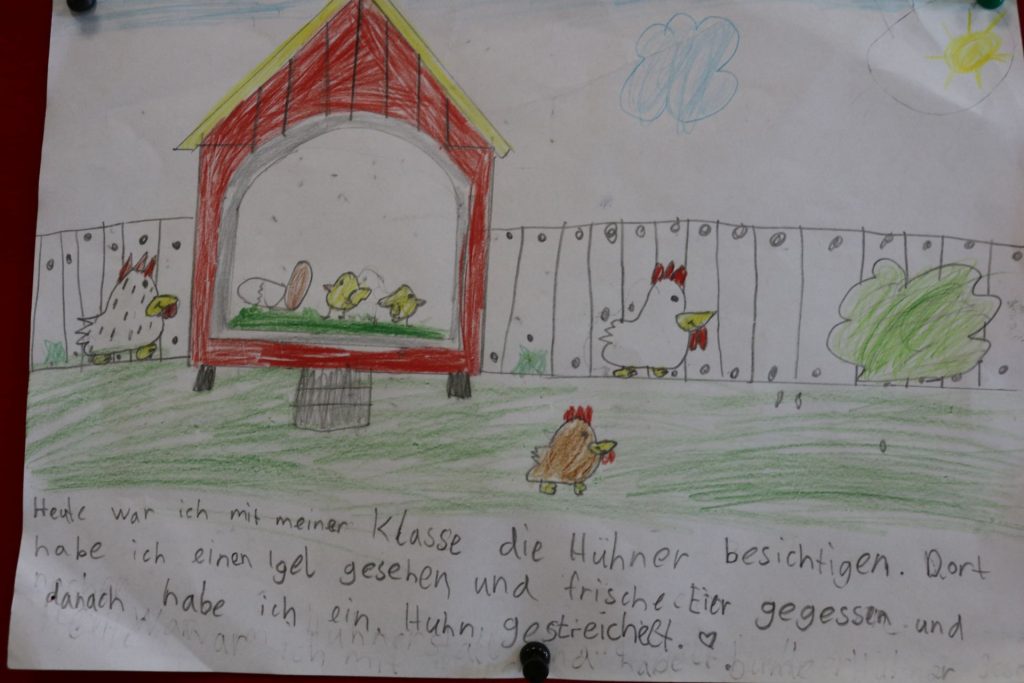 Heute war ich mit meiner Klasse die Hühner besichtigen. Dort
habe ich einen Igel gesehen und frische Eier gegessen und
danach habe ich ein Huhn gestreichelt. ♡